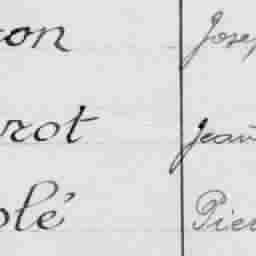 on Jose
rot Jean
olé Pier